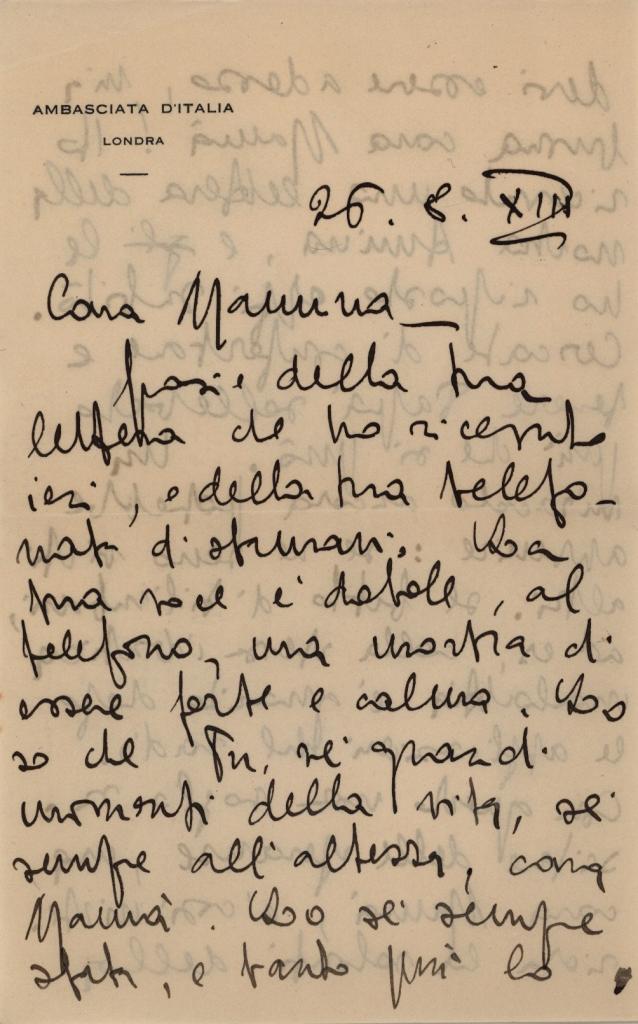 AMBASCIATA D'ITALIA
LONDRA
26. 8. XIII
Cara Mammina —
grazie della tua
lettera che ho ricevuto
ieri, e della tua telefo-
nata di stamani. La
tua voce è debole, al
telefono, ma mostra di
essere forte e calma. Lo
so che Tu, nei grandi
momenti della vita, sei
sempre all'altezza, cara
Mamà. Lo sei sempre
stata, e tanto più lo